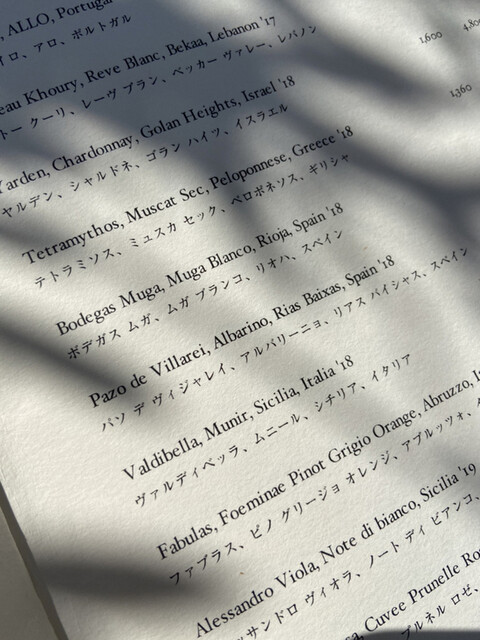 , ALLO, Portugal
ロ、アロ、ポルトガル
eau Khoury, Reve Blanc, Bekaa, Lebanon '17
トー クーリ、レーヴ ブラン、ベッカー ヴァレー、レバノン
1,600 4,800
Yarden, Chardonnay, Golan Heights, Israel '18
ヤルデン、シャルドネ、ゴラン ハイツ、イスラエル
1,360
Tetramythos, Muscat Sec, Peloponnese, Greece '18
テトラミソス、ミュスカ セック、ペロポネソス、ギリシャ
Bodegas Muga, Muga Blanco, Rioja, Spain '18
ボデガス ムガ、ムガ ブランコ、リオハ、スペイン
Pazo de Villarei, Albarino, Rias Baixas, Spain '18
パソ デ ヴィジャレイ、アルバリーニョ、リアス バイシャス、スペイン
Valdibella, Munir, Sicilia, Italia '18
ヴァルディベッラ、ムニール、シチリア、イタリア
Fabulas, Foeminae Pinot Grigio Orange, Abruzzo, I
ファブラス、ピノ グリージョ オレンジ、アブルッツォ、
Alessandro Viola, Note di bianco, Sicilia '19
ッサンドロ ヴィオラ、ノート ディ ビアンコ、
a, Cuvee Prunelle Ro
プルネル ロゼ、